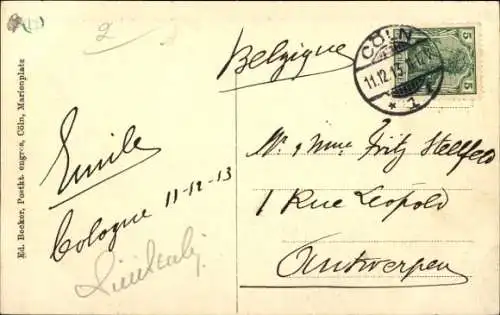 Ed. Becker, Postkt. engros, Cöln, Marienplatz
2
Emile
Cologne 11-12-13
Belgique
CÖLN
11.12.13
* 1
5 5
Mr & Mme Fritz Stellfeld
1 Rue Leopold
Antwerpen